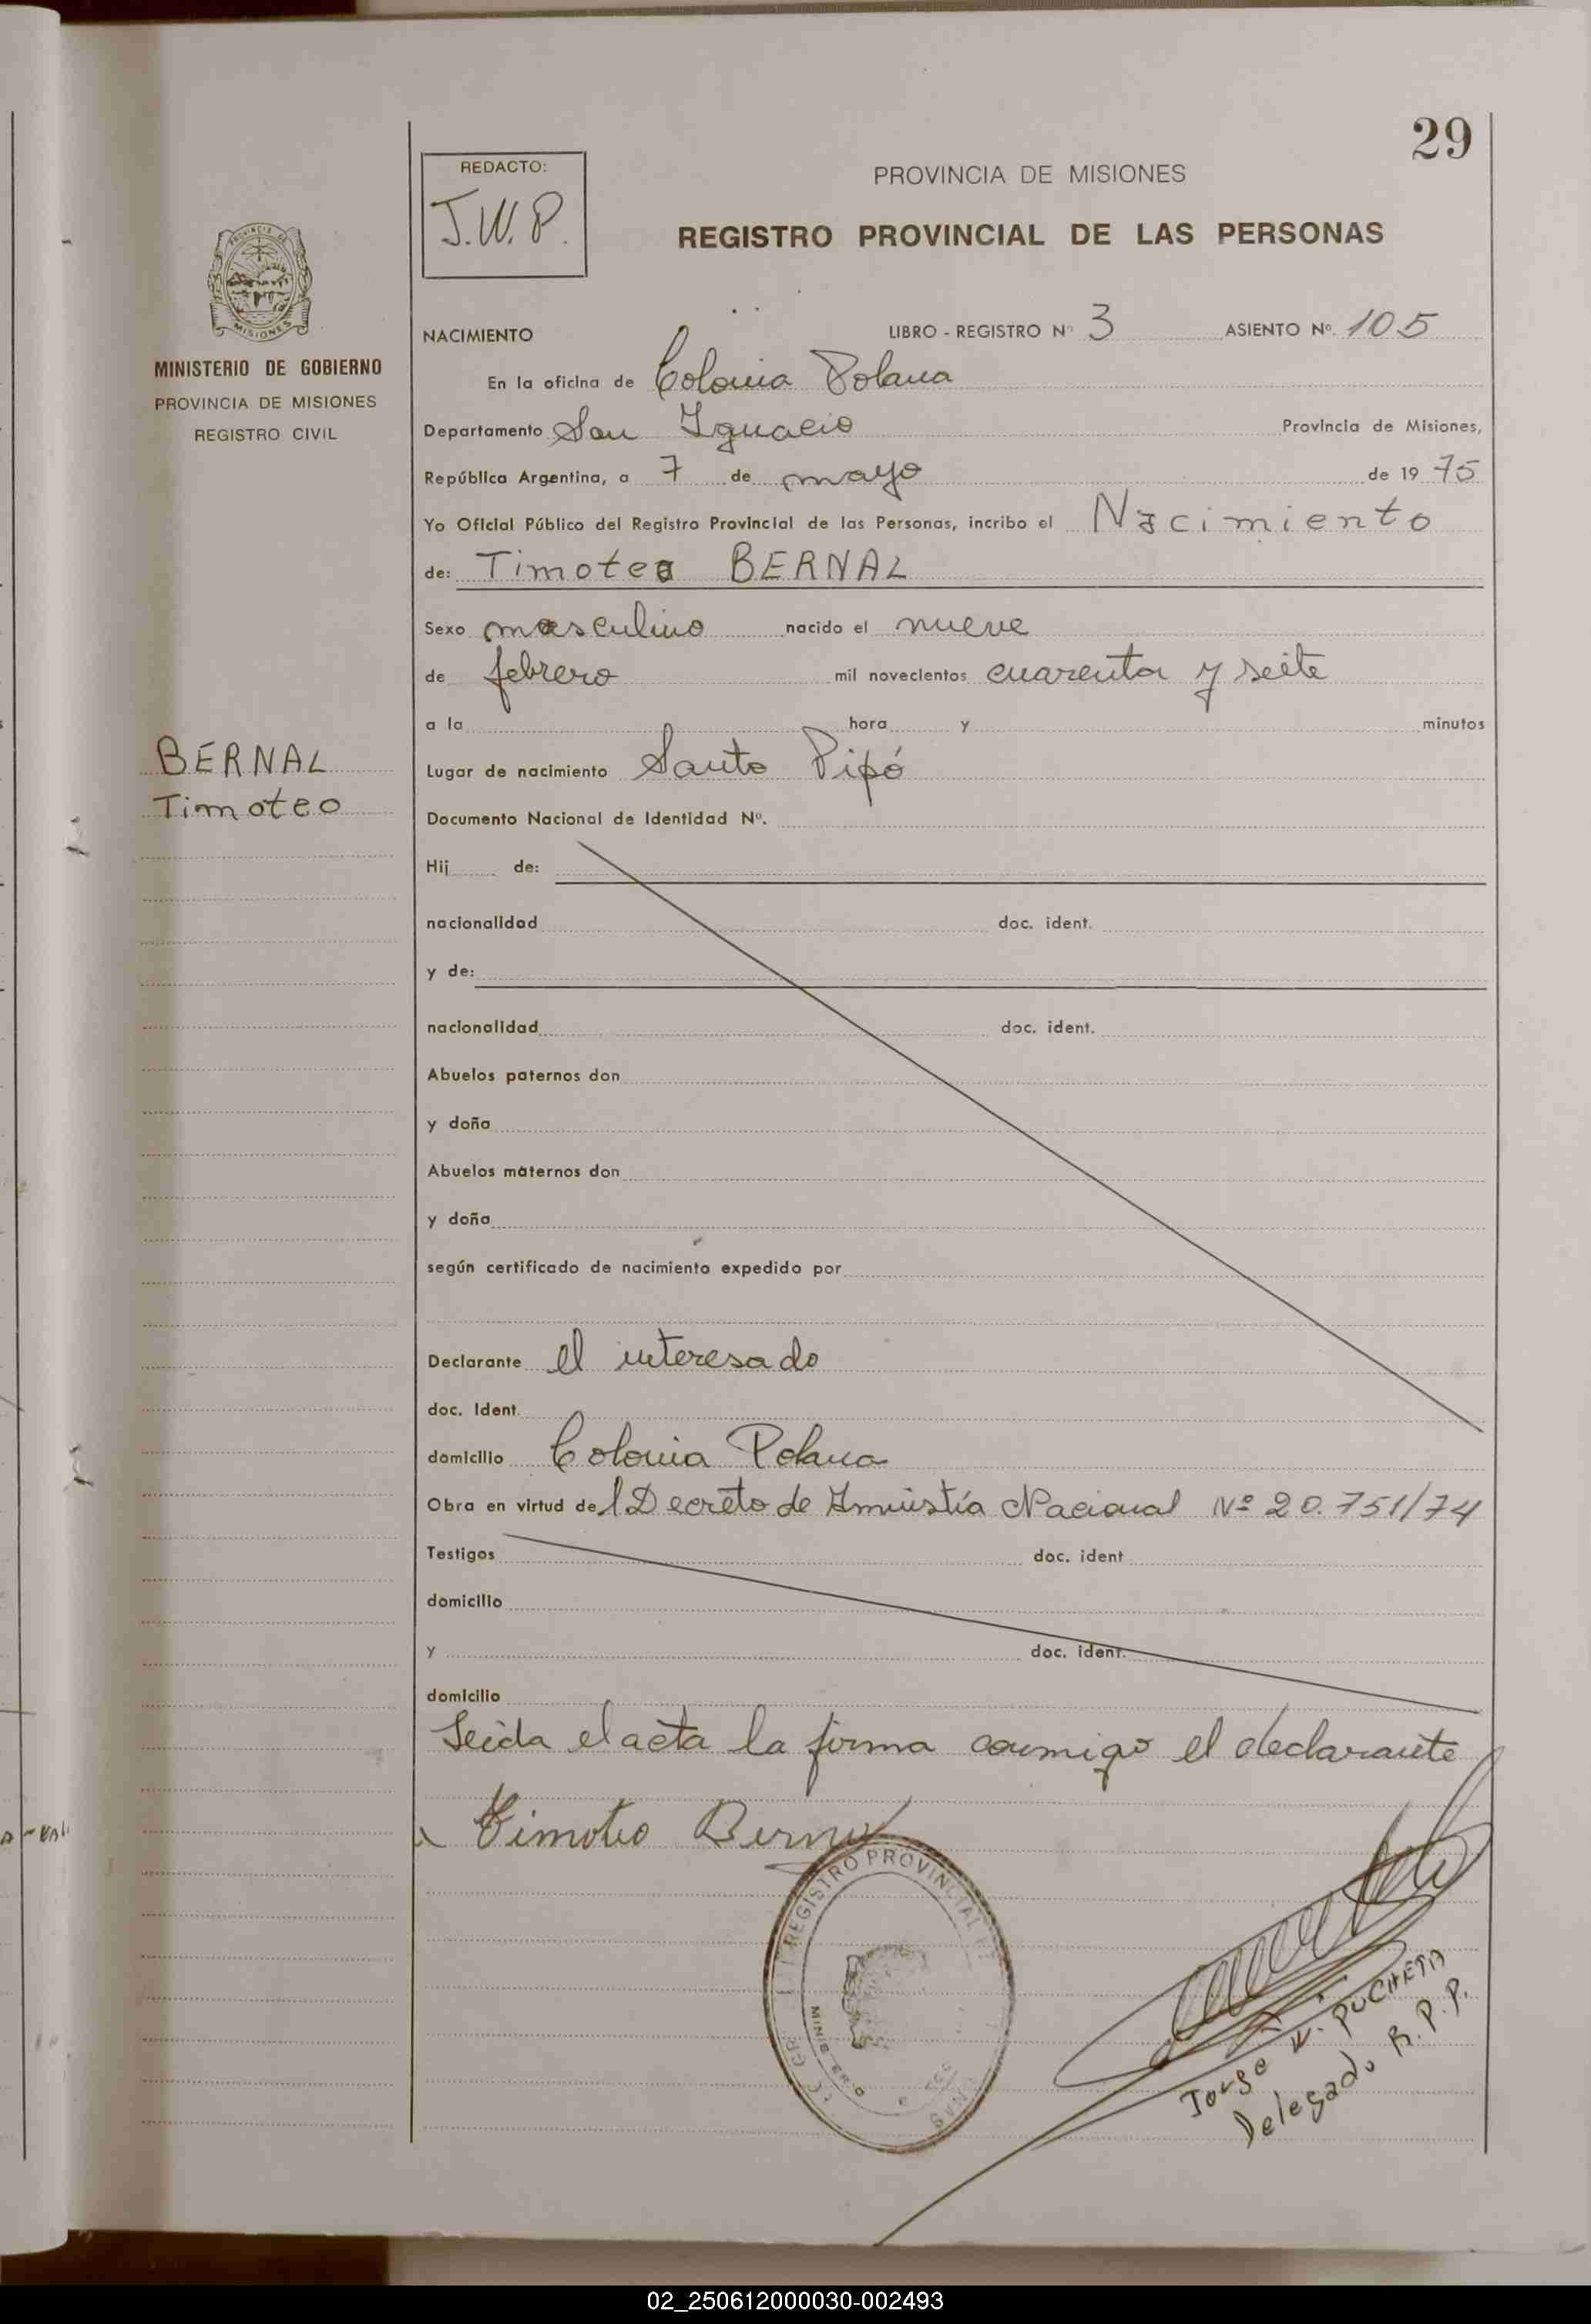 29
REDACTO:
J.W.P.
PROVINCIA DE MISIONES
REGISTRO PROVINCIAL DE LAS PERSONAS
MISIONES
MINISTERIO DE GOBIERNO
PROVINCIA DE MISIONES
REGISTRO CIVIL
BERNAL
Timoteo
NACIMIENTO LIBRO - REGISTRO Nº 3 ASIENTO Nº. 105
En la oficina de Colonia Polana
Departamento San Ignacio Provincia de Misiones,
República Argentina, a 7 de mayo de 19 75
Yo Oficial Público del Registro Provincial de las Personas, incribo el Nacimiento
de: Timoteo BERNAL
Sexo masculino nacido el nueve
de febrero mil novecientos cuarenta y seite
a la hora y minutos
Lugar de nacimiento Santo Pipó
Documento Nacional de Identidad Nº.
Hij de:
nacionalidad doc. ident.
y de:
nacionalidad doc. ident.
Abuelos paternos don
y doña
Abuelos maternos don
y doña
según certificado de nacimiento expedido por
Declarante el interesado
doc. Ident.
domicilio Colonia Polana
Obra en virtud del Decreto de Amnistía Nacional Nº 20.751/74
Testigos doc. ident
domicilio
y doc. ident.
domicilio
Leida el acta la firma conmigo el declarante
Timoteo Bernal
REGISTRO PROVINCIAL
Jorge W. PUCHETA
Delegado R.P.P.
02_250612000030-002493